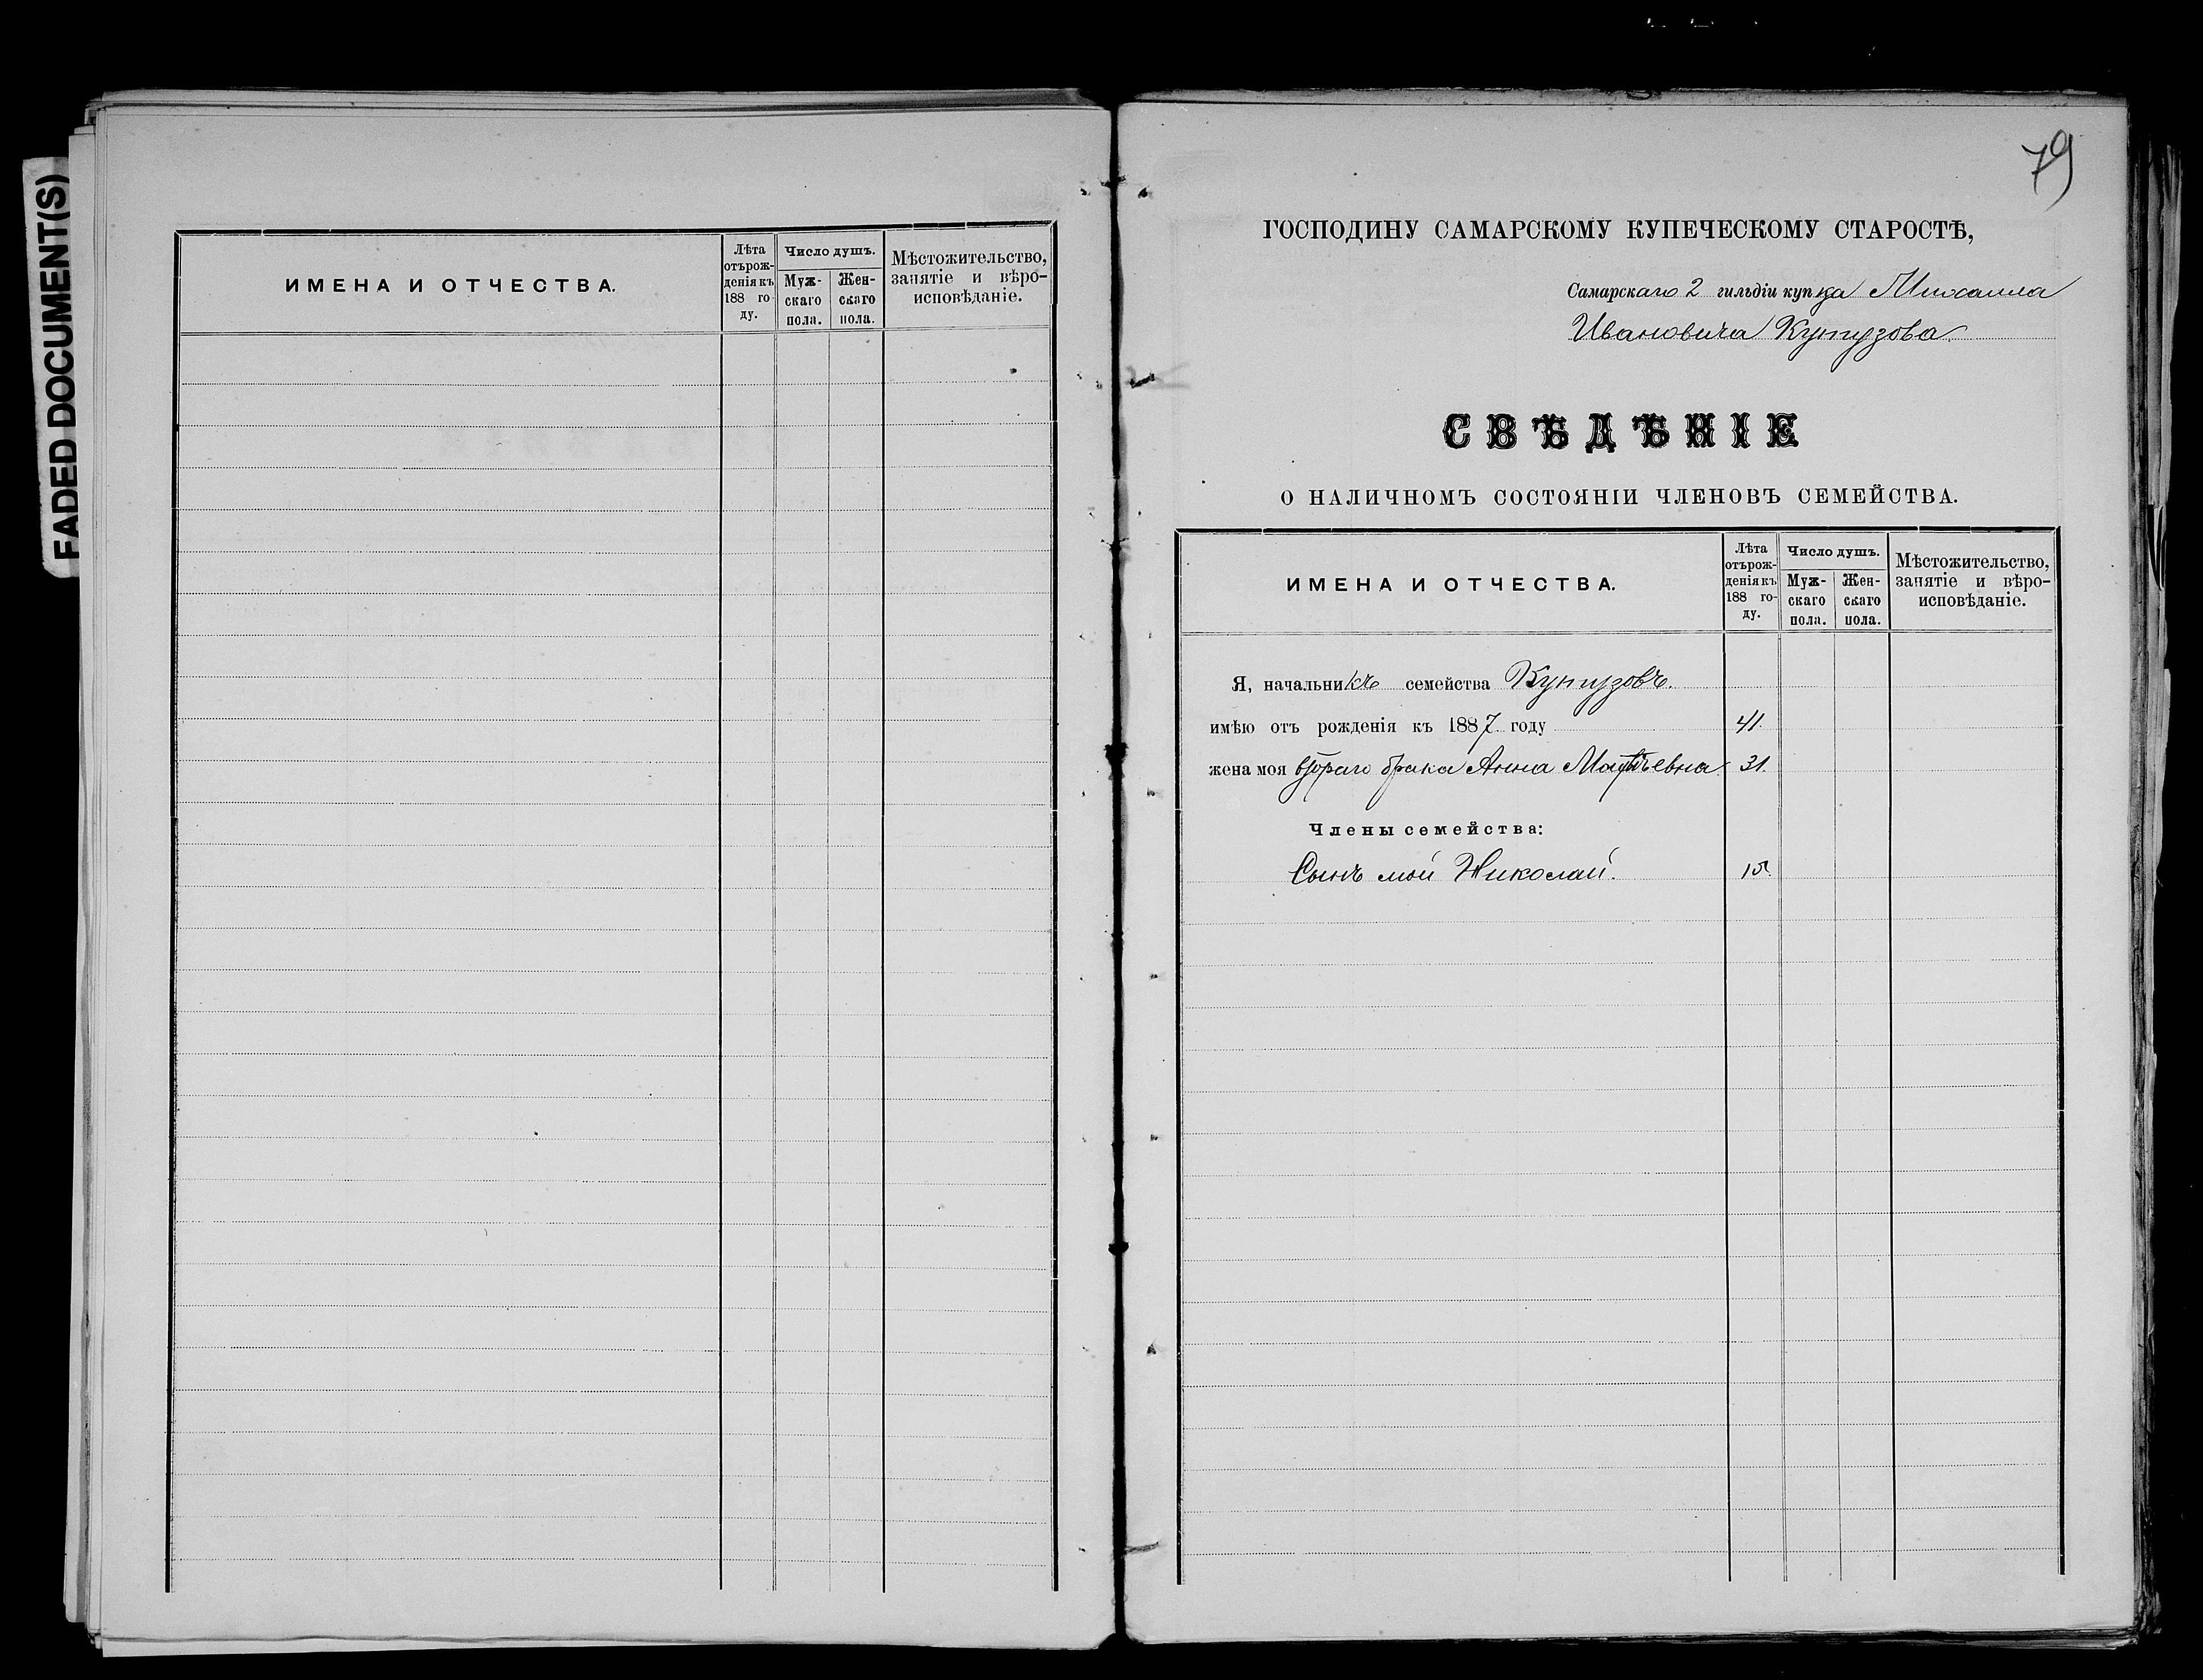 FADED DOCUMENT(S)
ИМЕНА И ОТЧЕСТВА.
Лѣта
отърож-
деніякъ
188 го-
ду.
Число душъ.
Муж-
скаго
пола.
Жен-
скаго
пола.
Мѣстожительство,
занятіе и вѣро-
исповѣданіе.
79
ГОСПОДИНУ САМАРСКОМУ КУПЕЧЕСКОМУ СТАРОСТѢ,
Самарскаго 2 гильдіи купца Михаила
Ивановича Кутузова.
СВѢДѢНІЕ
О НАЛИЧНОМЪ СОСТОЯНІИ ЧЛЕНОВЪ СЕМЕЙСТВА.
ИМЕНА И ОТЧЕСТВА.
Лѣта
отърож-
деніякъ
188 го-
ду.
Число душъ.
Муж-
скаго
пола.
Жен-
скаго
пола.
Мѣстожительство,
занятіе и вѣро-
исповѣданіе.
Я, начальникъ семейства Кутузовъ.
имѣю отъ рожденія къ 1887 году 41.
жена моя втораго брака Анна Матвѣевна 31.
Члены семейства:
Сынъ мой Николай. 15.